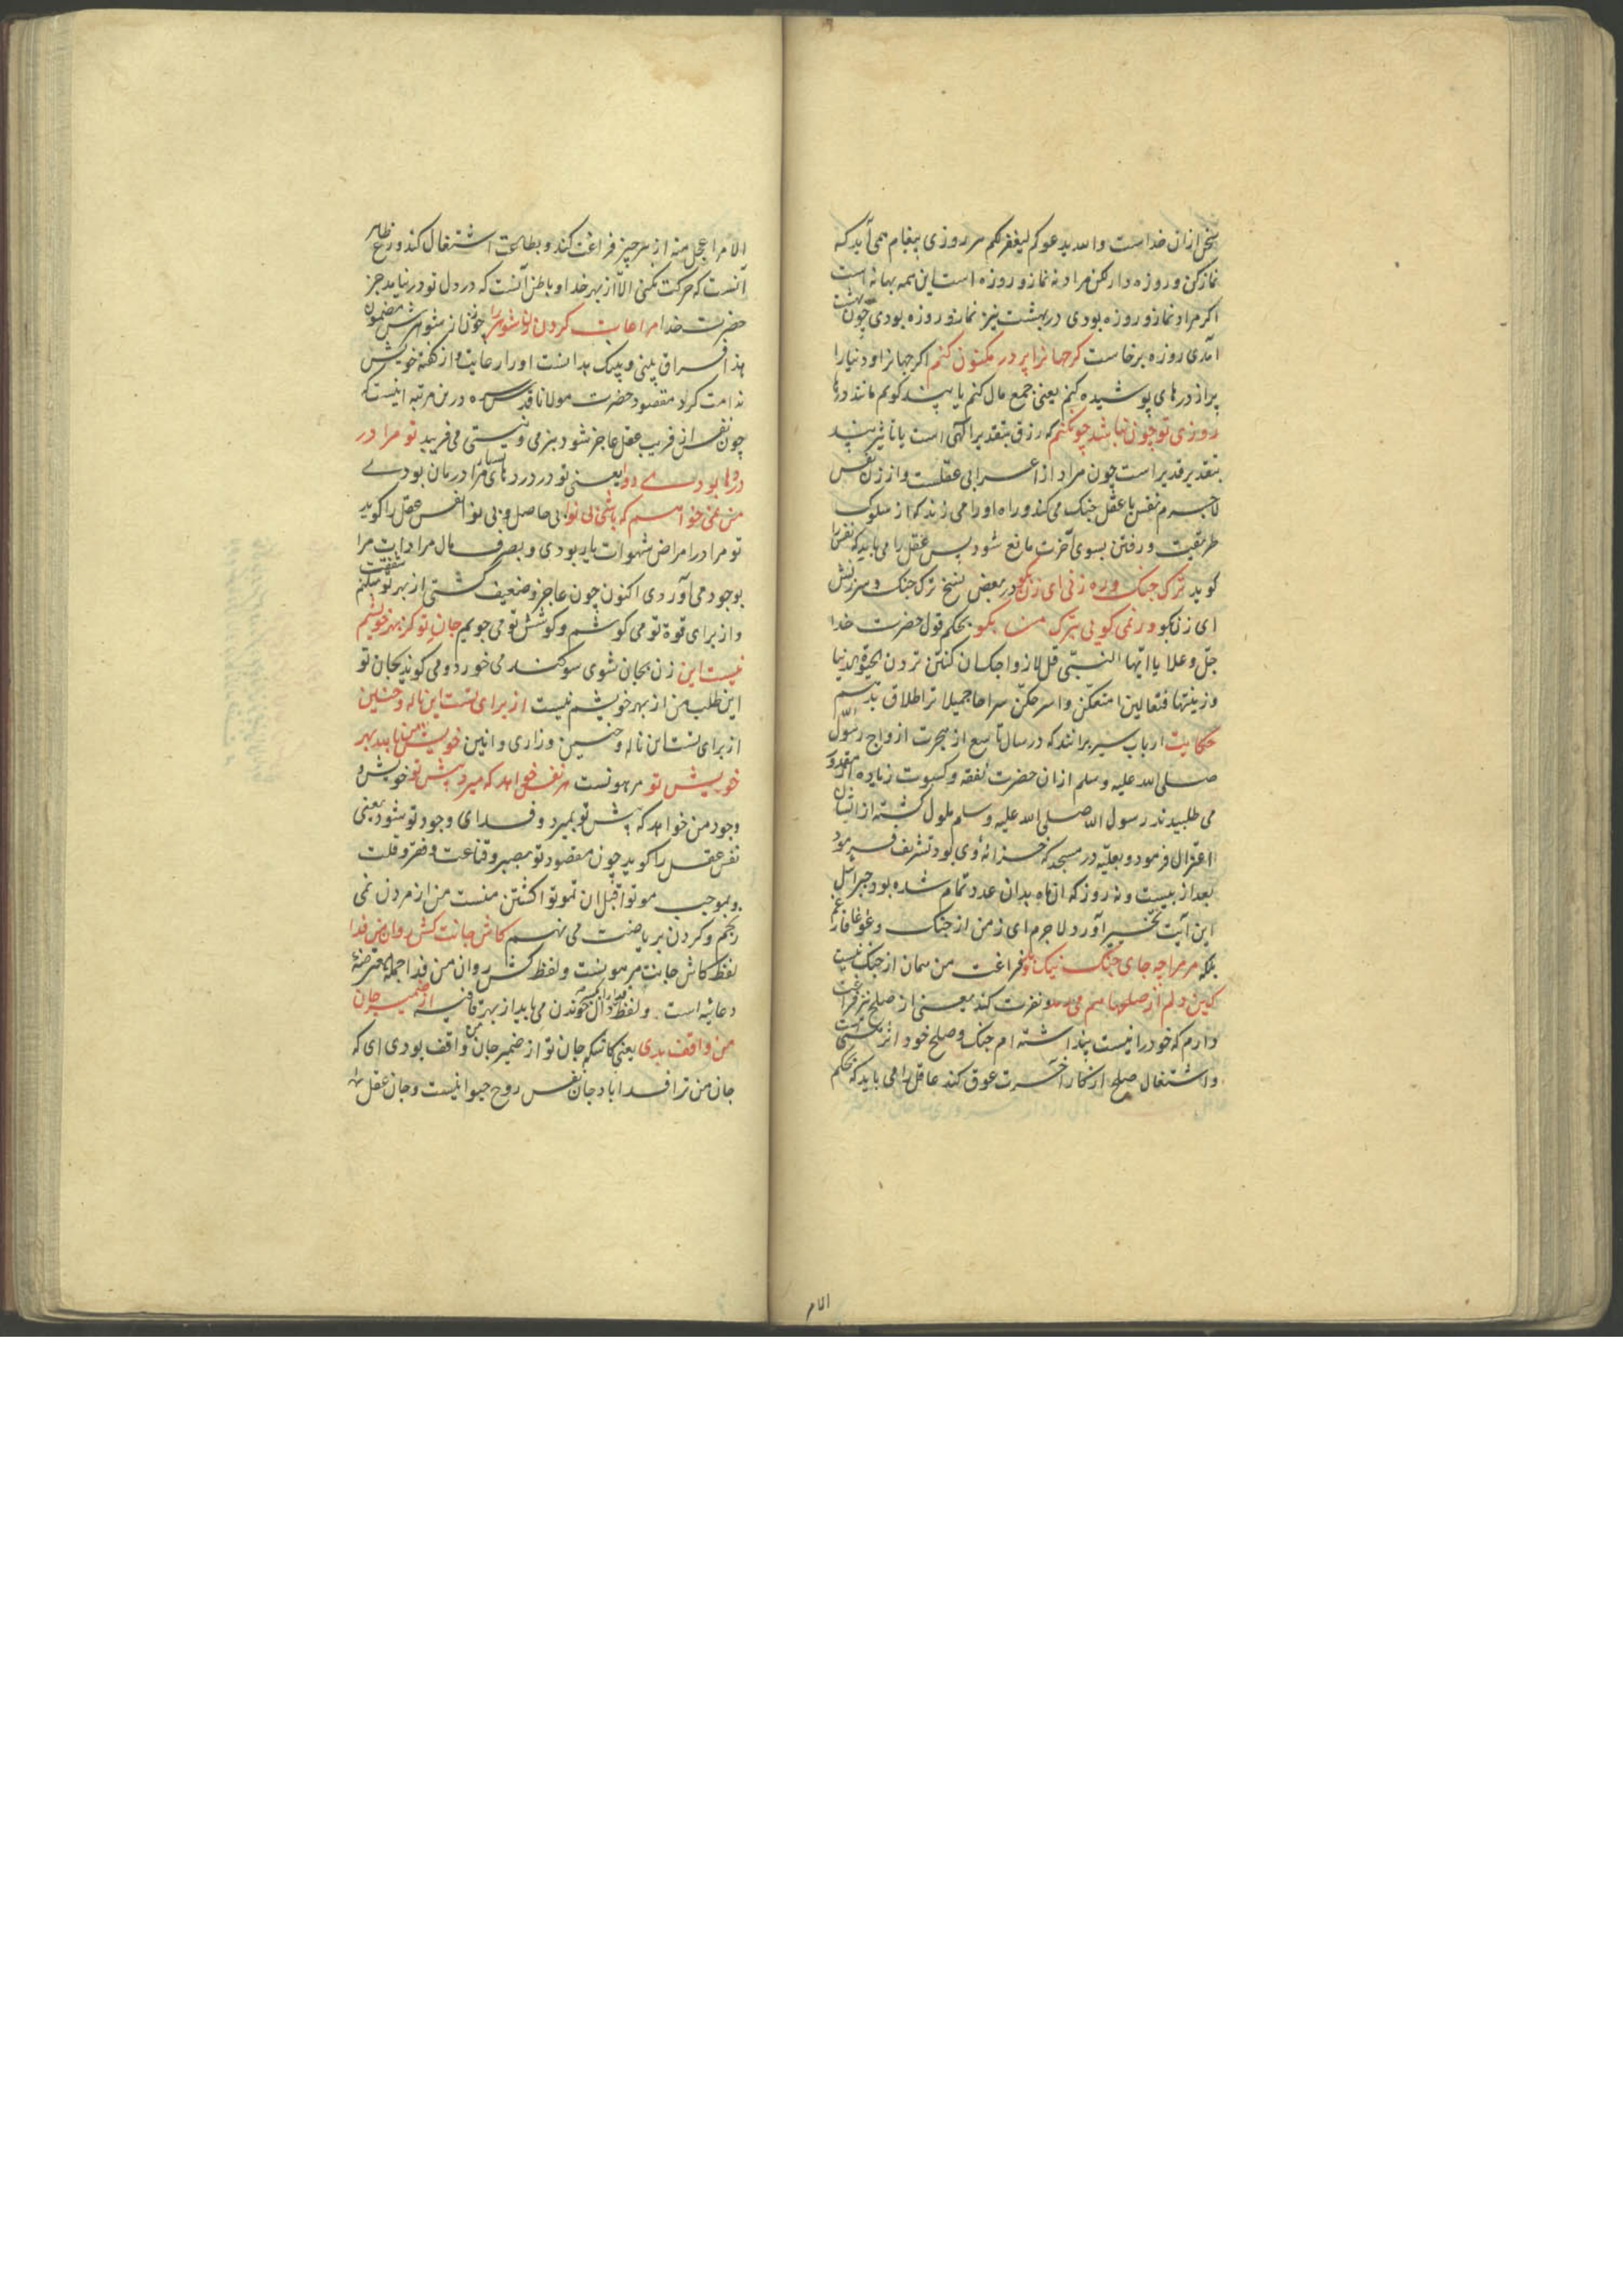 سخن ازان خداست والله یدعوکم لیغفر لکم هر روزی پیغام همی آید که
نماز کن و روزه دار لکن مراد نه نماز و روزه است این همه بهانه است
اگر مراد نماز و روزه بودی در بهشت نیز نماز و روزه بودی چون بهشت
آمدی روزه برخاست گر جهانرا پر در مکنون کنم اگر جهانرا و دنیارا
پر از درهای پوشیده کنم یعنی جمع مال کنم یا پند گویم مانند درها
روزی تو چون نباشد چون کنم که رزق بتقدیر الهی است یا تاثیر پند
بتقدیر قدیر است چون مراد از اعرابی عقلست و از زن نفس
لاجرم نفس با عقل جنک می کند و راه اورا می زند که از سلوک
طریقت و رفتن بسوی آخرت مانع شود پس عقل را می باید که نفس را
گوید ترک جنک و ره زنی ای زن بگو در بعض نسخ ترک جنک و سرزنش
ای زن بگو ور نمی گویی بترک من بگو بحکم قول حضرت خدا
جل وعلا یا ایها النبی قل لازواجک ان کنتن تردن الحیوة الدنیا
وزینتها فتعالین امتعکن واسرحکن سراحا جمیلا ترا طلاق بدهم
حکایت ارباب سیر برانند که در سال تاسع از هجرت ازواج رسول الله
صلی الله علیه وسلم ازان حضرت نفقه و کسوت زیاده از مقدور
می طلبیدند رسول الله صلی الله علیه وسلم ملول گشته از ایشان
اعتزال فرمود و بعلیه در مسجد که خزانهٔ وی بود تشریف فرمود
بعد از بیست و نه روز که آن ماه بدان عدد تمام شده بود جبرائیل
این آیت تخییر آورد لاجرم ای زن من از جنک و غوغا فارغم
بلکه مر مرا چه جای جنک نیک و بد فراغت من همان از جنک نیست
کین دلم از صلحها هم می رمد و نفرت کند یعنی از صلح نیز فراغت
دارم که خود را نیست پنداشته ام جنک و صلح خود اثر هستی است
و اشتغال صلح از کار آخرت عوق کند عاقل را می باید که بحکم
الامر
الامر اعجل منه از هر چیز فراغت کند و بطاعت اشتغال کند ورع ظاهر
آنست که حرکت نکنی الا از بهر خدا و باطن آنست که در دل تو در نیاید جز
حضرت خدا مراعات کردن زن شوهر را چون زن از شوهرش مضمون
هذا فراق بینی وبینک بدانست اورا رعایت و از گفتهٔ خویش
ندامت کرد مقصود حضرت مولانا قدس سره درین مرتبه اینست که
چون نفس از فریب عقل عاجز شود بنرمی و نیستی می فریبد تو مرا در
دردها بودی دوا یعنی تو در دردهای بسیار مرا درمان بودی
من نمی خواهم که باشی بی نوا بی حاصل و بی نوا نفس عقل را گوید
تو مرا در امراض شهوات یار بودی و بصرف مال مرادات مرا
بوجود می آوردی اکنون چون عاجز و ضعیف گشتی از بهر تو شفقت میکنم
و از برای قوة تو می کوشم و کوشش تو می جویم جان تو کز بهر خویشم
نیست این زن بجان شوی سوگند می خورد و می گوید بجان تو
این طلب من از بهر خویشم نیست از برای تست این ناله و حنین
از برای تست این ناله و حنین و زاری و انین خویش من بالله بهر
خویش تو مرهونست هر نفس خواهد که میرد پیش تو خویش و
وجود من خواهد که پیش تو بمیرد و فدای وجود تو شود یعنی
نفس عقل را گوید چون مقصود تو بصبر و قناعت و فقر و قلت
و بموجب موتوا قبل ان تموتوا کشتن منست من از مردن نمی
رنجم و گردن بریاضت می نهم کاش جانت کش روان من فدا
لفظ کاش جانت مرهونست و لفظ کش روان من فدا جملهٔ معترضهٔ
دعائیه است و لفظ فدا را بکسر دال خوندن می باید از بهر قافیه از ضمیر جان
من واقف بدی یعنی کاشکه جان تو از ضمیر جان من واقف بودی ای که
جان من ترا فدا باد جان نفس روح حیوانیست و جان عقل